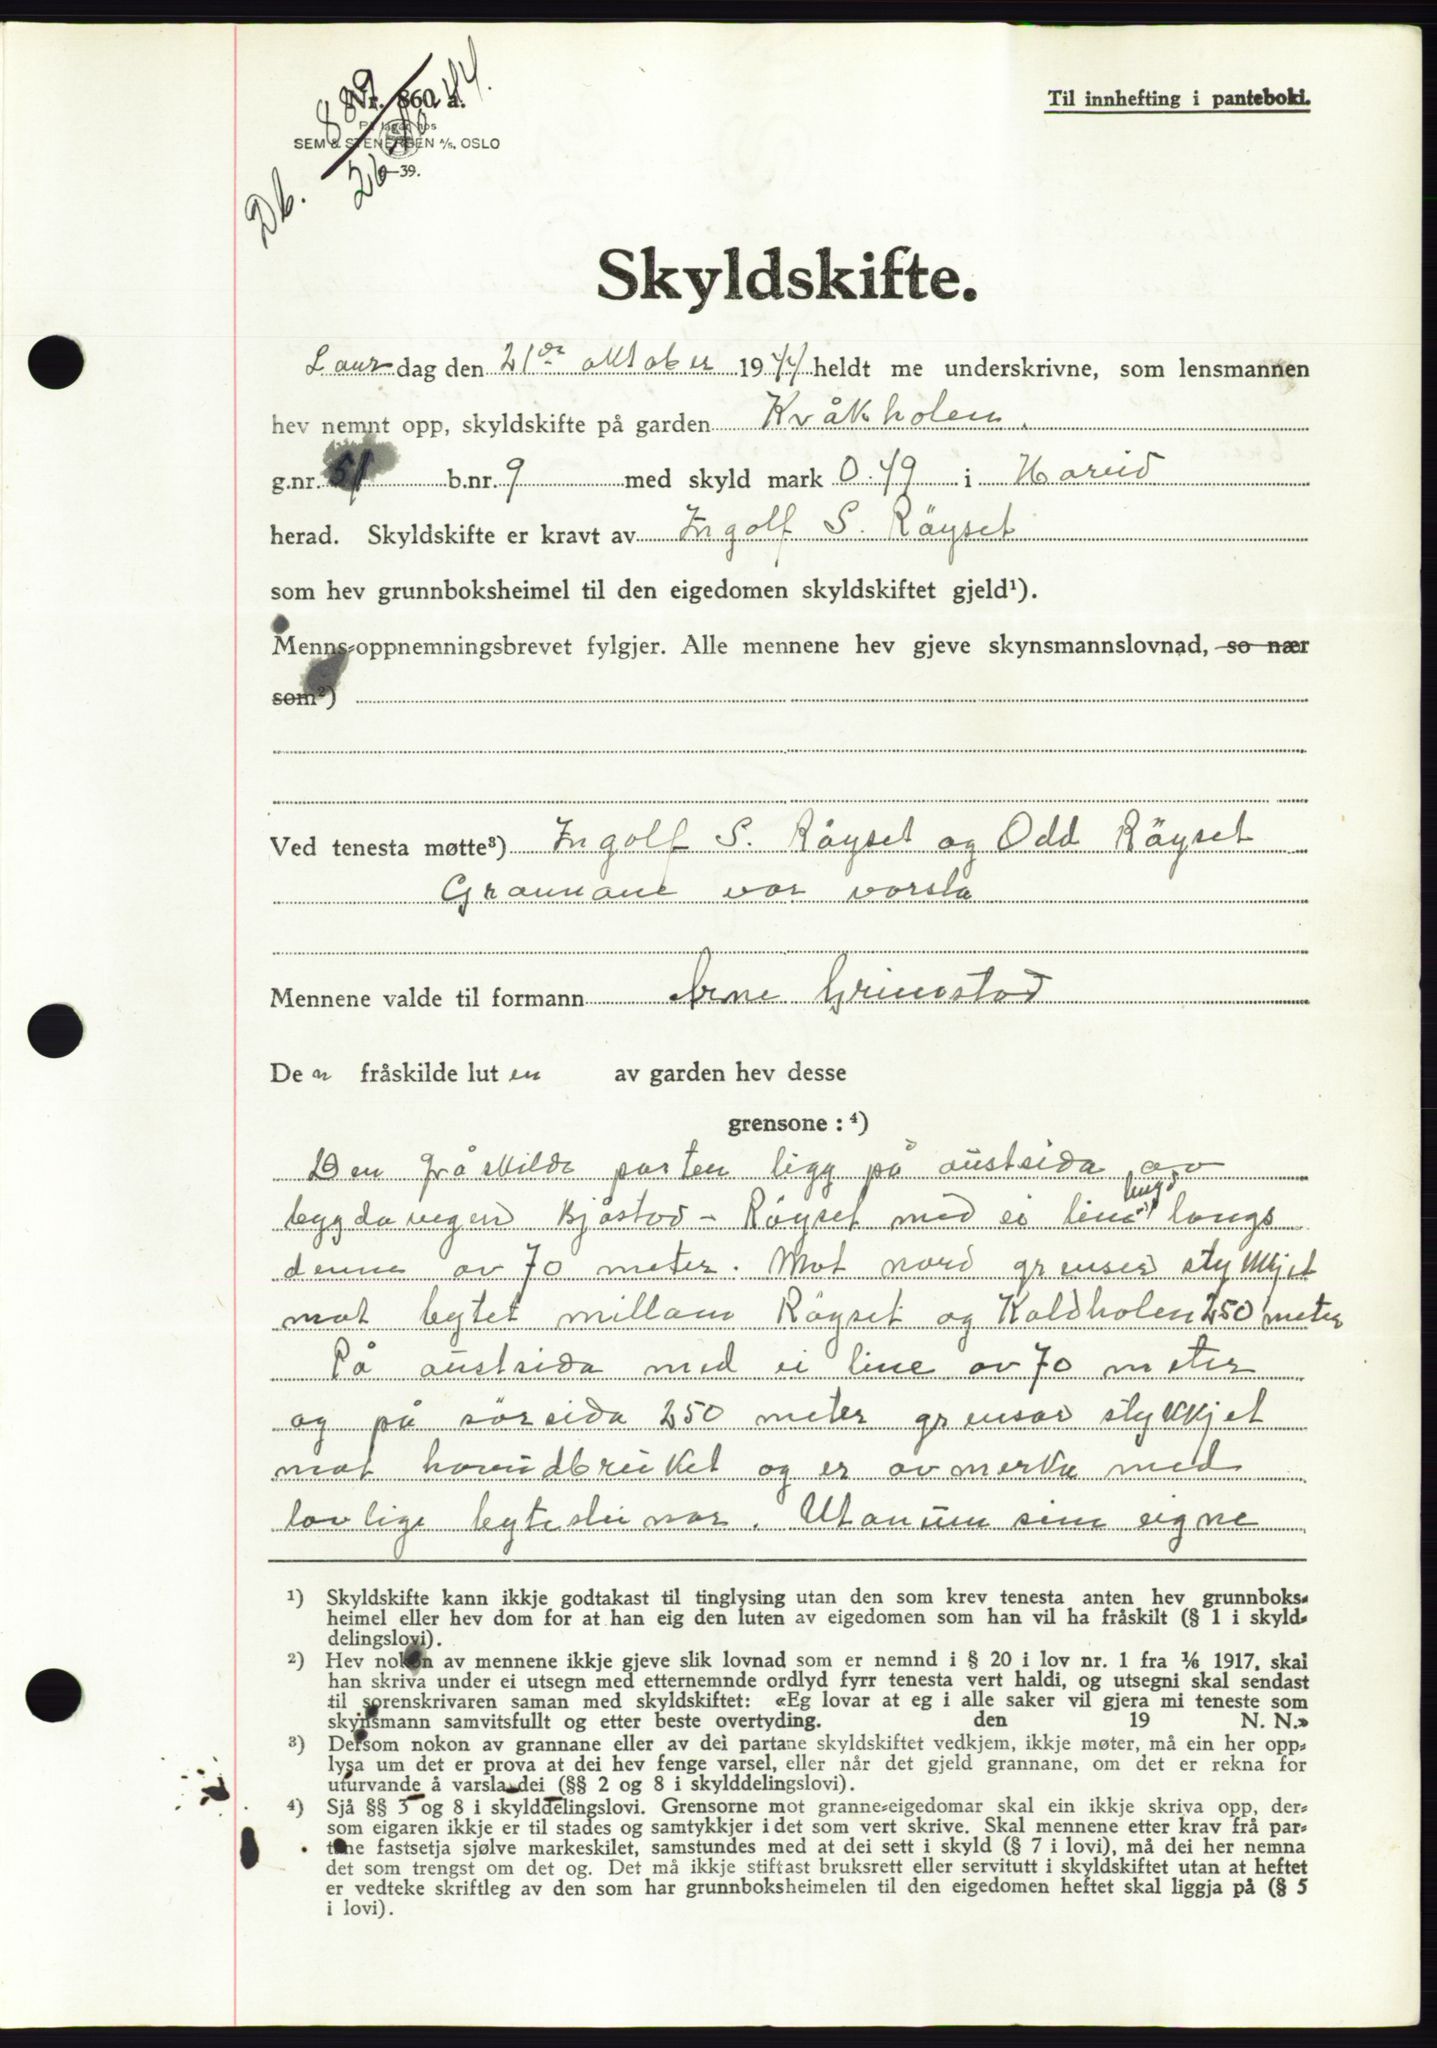 Db. 889
26/10-44.
Nr. 860 a.
På lager hos
SEM & STENERSEN A/S, OSLO
9—39.
Til innhefting i panteboki.
Skyldskifte.
Laur dag den 21de oktober 1944 heldt me underskrivne, som lensmannen
hev nemnt opp, skyldskifte på garden Kvåkholen
g.nr. 51 b.nr. 9 med skyld mark 0.49 i Hareid
herad. Skyldskifte er kravt av Ingolf S. Röyset
som hev grunnboksheimel til den eigedomen skyldskiftet gjeld¹).
Menns-oppnemningsbrevet fylgjer. Alle mennene hev gjeve skynsmannslovnad, so nær
som²)
Ved tenesta møtte³) Ingolf S. Röyset og Odd Röyset
Grannane var varsla
Mennene valde til formann Arne Grimstad
De n fråskilde lut en av garden hev desse
grensone : ⁴)
Den fråskilde parten ligg på austsida av
bygdavegen Bjåstad - Röyset med ei line langs
denne av 70 meter. Mot nord grensar stykkjet
mot bytet millom Röyset og Kaldholen 250 meter
På austsida med ei line av 70 meter
og på sörsida 250 meter grensar stykkjet
mot hovudbruket og er avmerka med
lovlige bytesteinar. Utanum sine eigne
¹) Skyldskifte kann ikkje godtakast til tinglysing utan den som krev tenesta anten hev grunnboks-
heimel eller hev dom for at han eig den luten av eigedomen som han vil ha fråskilt (§ 1 i skyld-
delingslovi).
²) Hev nokon av mennene ikkje gjeve slik lovnad som er nemnd i § 20 i lov nr. 1 fra 1/6 1917, skal
han skriva under ei utsegn med etternemnde ordlyd fyrr tenesta vert haldi, og utsegni skal sendast
til sorenskrivaren saman med skyldskiftet: «Eg lovar at eg i alle saker vil gjera mi teneste som
skynsmann samvitsfullt og etter beste overtyding. den 19 N. N.»
³) Dersom nokon av grannane eller av dei partane skyldskiftet vedkjem, ikkje møter, må ein her opp-
lysa um det er prova at dei hev fenge varsel, eller når det gjeld grannane, om det er rekna for
uturvande å varsla dei (§§ 2 og 8 i skylddelingslovi).
⁴) Sjå §§ 3 og 8 i skylddelingslovi. Grensorne mot granne-eigedomar skal ein ikkje skriva opp, der-
som eigaren ikkje er til stades og samtykkjer i det som vert skrive. Skal mennene etter krav frå par-
tane fastsetja sjølve markeskilet, samstundes med at dei sett i skyld (§ 7 i lovi), må dei her nemna
det som trengst om det og. Det må ikkje stiftast bruksrett eller servitutt i skyldskiftet utan at heftet
er vedteke skriftleg av den som har grunnboksheimelen til den eigedomen heftet skal liggja på (§ 5
i lovi).